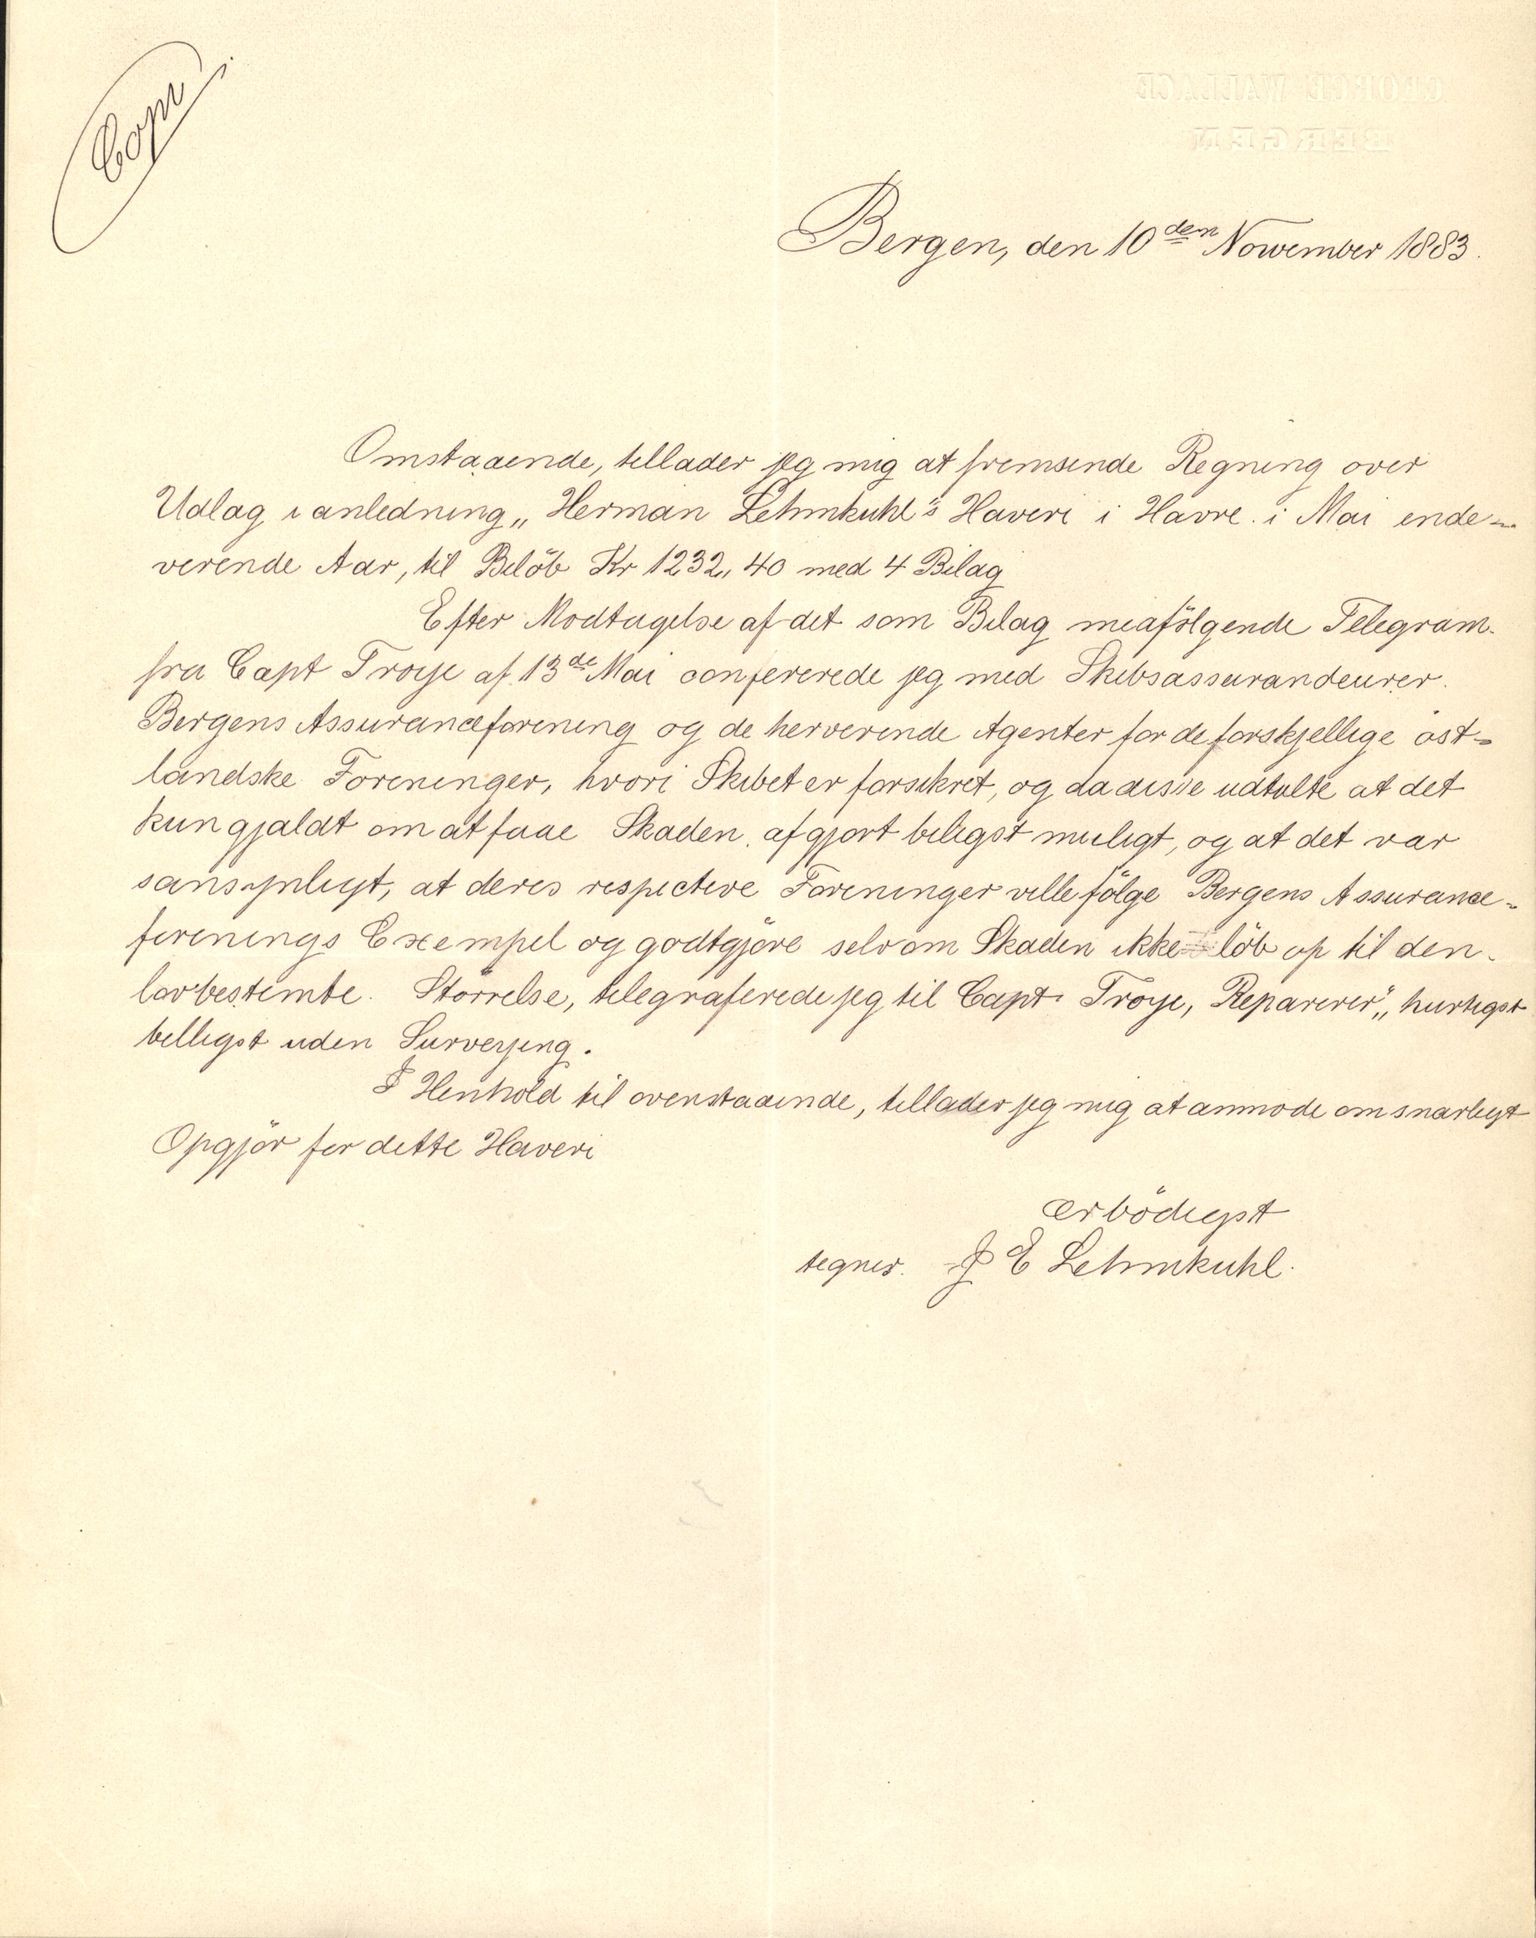 Copi
GEORGE WALLACE
BERGEN
Bergen, den 10den November 1883.
Omstaaende, tillader jeg mig at fremsende Regning over
Udlag i anledning „Herman Lehmkuhl"s Haveri i Havre. i Mai inde-
verende Aar, til Belöb Kr 1232,,40 med 4 Bilag
Efter Modtagelse af det som Bilag medfölgende Telegram.
fra Capt Troye af 13de Mai confererede jeg med Skibsassurandeurer.
Bergens Assuranceforening og de herverende Agenter for de forskjellige öst-
landske Foreninger, hvori Skibet er forsikret, og da disse udtalte at det
kun gjaldt om at faae Skaden. afgjort biligst muligt, og at det var
sansynligt, at deres respective Foreninger ville fölge Bergens Assurance-
forenings Exempel og godtgjöre selv om Skaden ikke löb op til den.
lovbestemte. Störrelse, telegraferede jeg til Capt. Troye, Reparerer",, hurtigst
billigst uden Surveying.
I Henhold til ovenstaaende, tillader jeg mig at anmode om snarligt
Opgjör for dette Haveri
ærbödigst
tegner. J E Lehmkuhl.